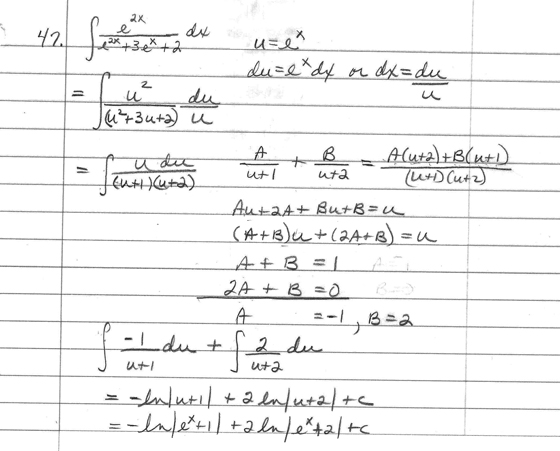 47. ∫ e^{2x}/(e^{2x}+3e^x+2) dx u=e^x
du=e^x dx or dx=du/u
= ∫ u^2/(u^2+3u+2) du/u
= ∫ u du/((u+1)(u+2)) A/(u+1) + B/(u+2) = (A(u+2)+B(u+1))/((u+1)(u+2))
Au+2A+Bu+B=u
(A+B)u+(2A+B)=u
A+B=1
2A+B=0
A =-1, B=2
∫ -1/(u+1) du + ∫ 2/(u+2) du
= -ln|u+1| + 2ln|u+2|+c
= -ln|e^x+1| + 2ln|e^x+2|+c